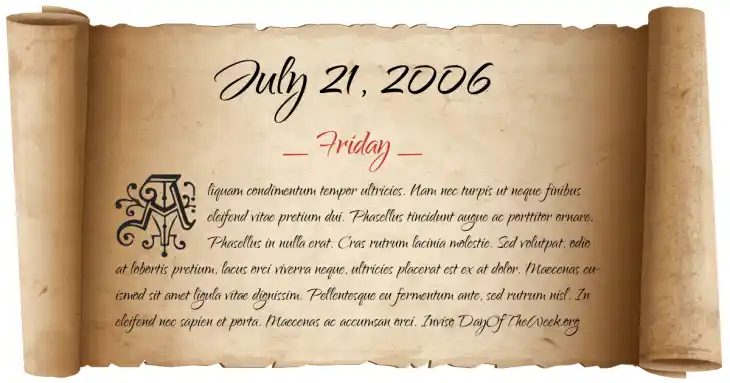 July 21, 2006
— Friday —
Aliquam condimentum tempor ultricies. Nam nec turpis ut neque finibus
eleifend vitae pretium dui. Phasellus tincidunt augue ac porttitor ornare.
Phasellus in nulla erat. Cras rutrum lacinia molestie. Sed volutpat, odio
at lobortis pretium, lacus orci viverra neque, ultricies placerat est ex at dolor. Maecenas eu-
ismod sit amet ligula vitae dignissim. Pellentesque eu fermentum ante, sed rutrum nisl. In
eleifend nec sapien et porta. Maecenas ac accumsan orci. Inviso DayOfTheWeek.org